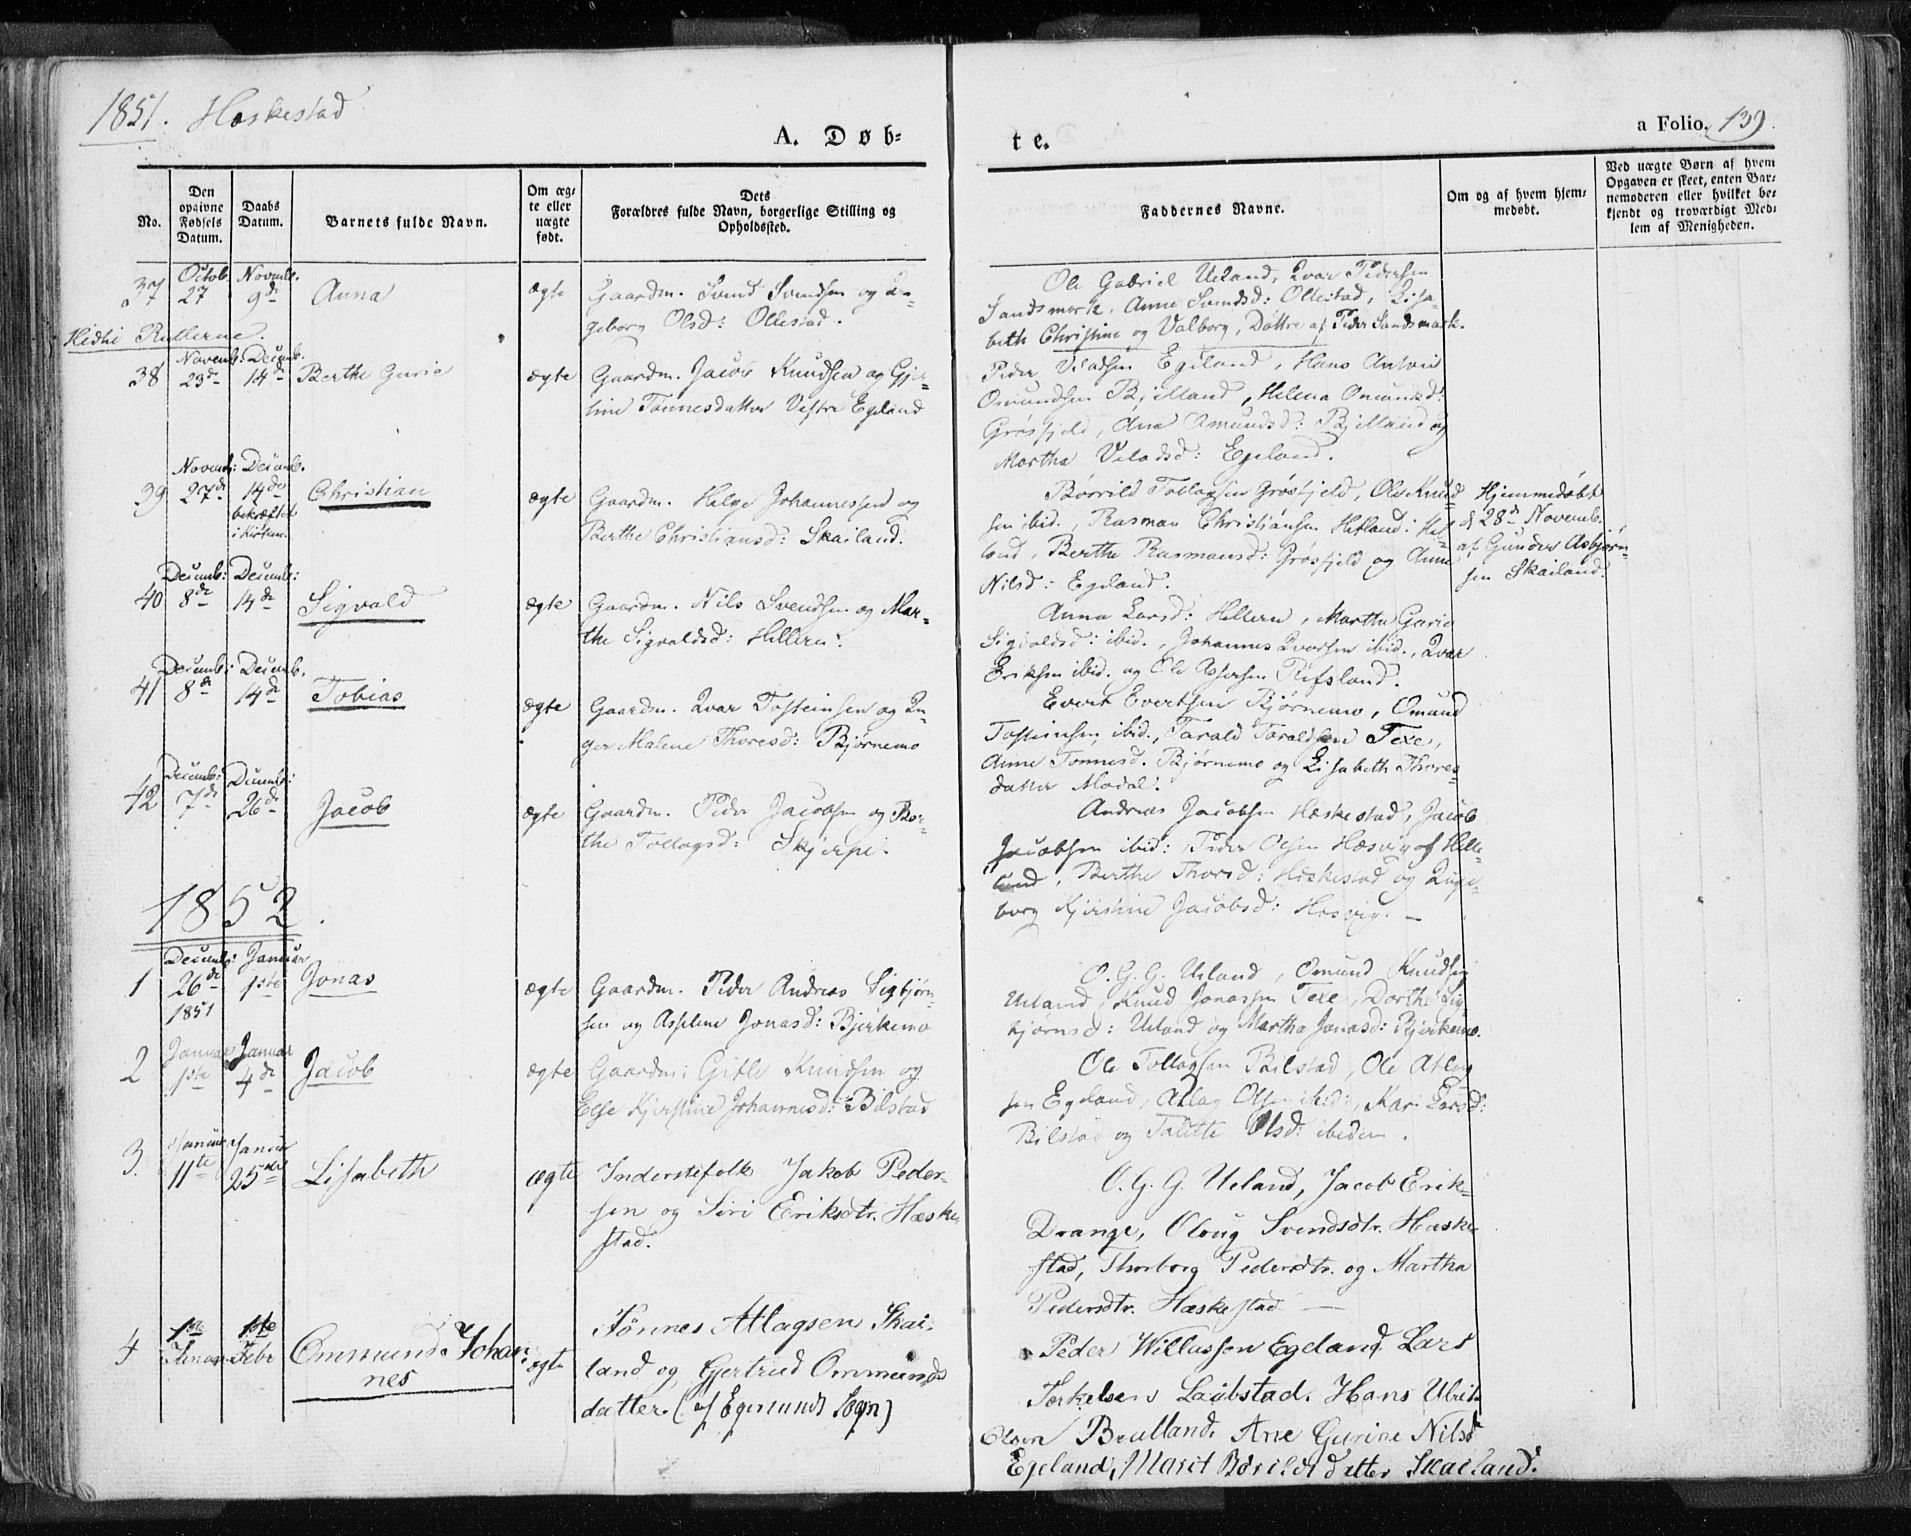 1851. Heskestad
A. Døb-
te.
a Folio. 139.
No.
Den opgivne Fødsels Datum.
Daabs Datum.
Barnets fulde Navn.
Om æg-
te eller
uægte
født.
Dets
Forældres fulde Navn, borgerlige Stilling og
Opholdssted.
Faddernes Navne.
Om og af hvem hjem-
medøbt.
Ved uægte Børn af hvem
Opgaven er skeet, enten Bar-
nemoderen eller hvilket be-
kjendt og troværdigt Med-
lem af Menigheden.
37 Octob. 27 Novemb. 9de Anna ægte Gaardm. Svend Svendsen og In-
geborg Olsd: Ollestad.
Ole Gabriel Ueland, Ivar Pedersen
Sandsmork, Anne Svendsd: Ollestad, Lisa-
beth Christine og Valborg, Døttre af Peder Sandsmark.
Rullerne.
38 Novemb: 23de Decemb. 14de Berthe Gurie ægte Gaardm. Jacob Knudsen og Gjer-
tine Tønnesdatter Vestre Egeland
Peder Egeland, Hans Anton
Omundsen Bjelland, Helena Omundsd:
Grøsfjeld, Ane Omundsd: Bjelland og
Martha Egeland.
39 Novemb: 27de Decemb. 14de
bekræftet
i Kirken.
Christian ægte Gaardm. Helge Johannessen og
Berthe Christiansd: Skailand.
Børrild Tollagsen Grøsfjeld, Ole Knud-
sen ibid., Rasmus Christiansen Hetland i Hel-
land, Berthe Rasmusd: Grøsfjeld og Anne
Nilsd: Egeland.
Hjemmedøbt
d 28de Novemb.
af Gunder Asbjørn-
sen Skailand.
40 Decemb: 8de Decemb: 14de Sigvald ægte Gaardm. Nils Svendsen og Mar-
the Sigvaldsd: Hellern.
Anna Larsd: Hellern, Martha Gurie
Sigvaldsd: ibid., Johannes Ivarsen ibid., Ivar
Eriksen ibid. og Ole Assersen Refsland.
41 Decemb: 8de Decemb. 14de Tobias ægte Gaardm. Ivar Tosteinsen og In-
ger Malene Thoresd: Bjørnemo
Evert Evertsen Bjørnemo, Omund
Tosteinsen ibid., Tarald Taraldsen Texe,
Anne Tønnesd. Bjørnemo og Lisabeth Thores-
datter Modal.
42 Decemb: 7de Decemb: 26de Jacob ægte Gaardm. Peder Jacobsen og Ber-
the Tollagsd: Skjerpe.
Andreas Jacobsen Heskestad, Jacob
Jacobsen ibid: Peder Olsen Hæsvig af Helle-
land, Berthe Thorsd: Heskestad og Inge-
borg Kjerstine Jacobsd: Hæsvig. —
1852.
1 Decemb: 26de 1851 Januar 1ste Jonas ægte Gaardm. Peder Andreas Sigbjørn-
sen og Asseline Jonasd: Bjerkemo
O. G. G. Ueland, Omund Knudsen
Ueland, Knud Jonassen Texe, Dorthe Sig-
bjørnsd: Ueland og Martha Jonasd: Bjerkemo.
2 Januar 1ste Januar 4de Jacob ægte Gaardm: Gitle Knudsen og
Else Kjerstine Johannesd: Bilstad
Ole Tollagsen Bilstad, Ole Atlag-
sen Egeland, Atlag Olsen ibid:, Kari Larsd:
Bilstad og Talette Olsd: ibidem.
3. Januar 11te Januar 25de Lisabeth ægte Inderstefolk Jakob Peder-
sen og Siri Eriksdtr. Hæske-
stad.
O. G. G. Ueland, Jacob Erik-
Drange, Oloug Svendsdtr. Hæske-
stad, Thorborg Pedersdtr. og Martha
Pedersdtr. Hæskestad —
4 1ste 1ste Febr Ommund Johan-
nes ægte Tønnes Atlagsen Skai-
land og Gjertrud Ommunds-
datter. (af Egersunds Sogn)
Peder Willassen Egeland, Lars
Terkelsen Laubstad. Hans Ulrik
Olsen Bralland. Ane Gurine Nilsd
Egeland, Marit Børildsdatter Skailand.